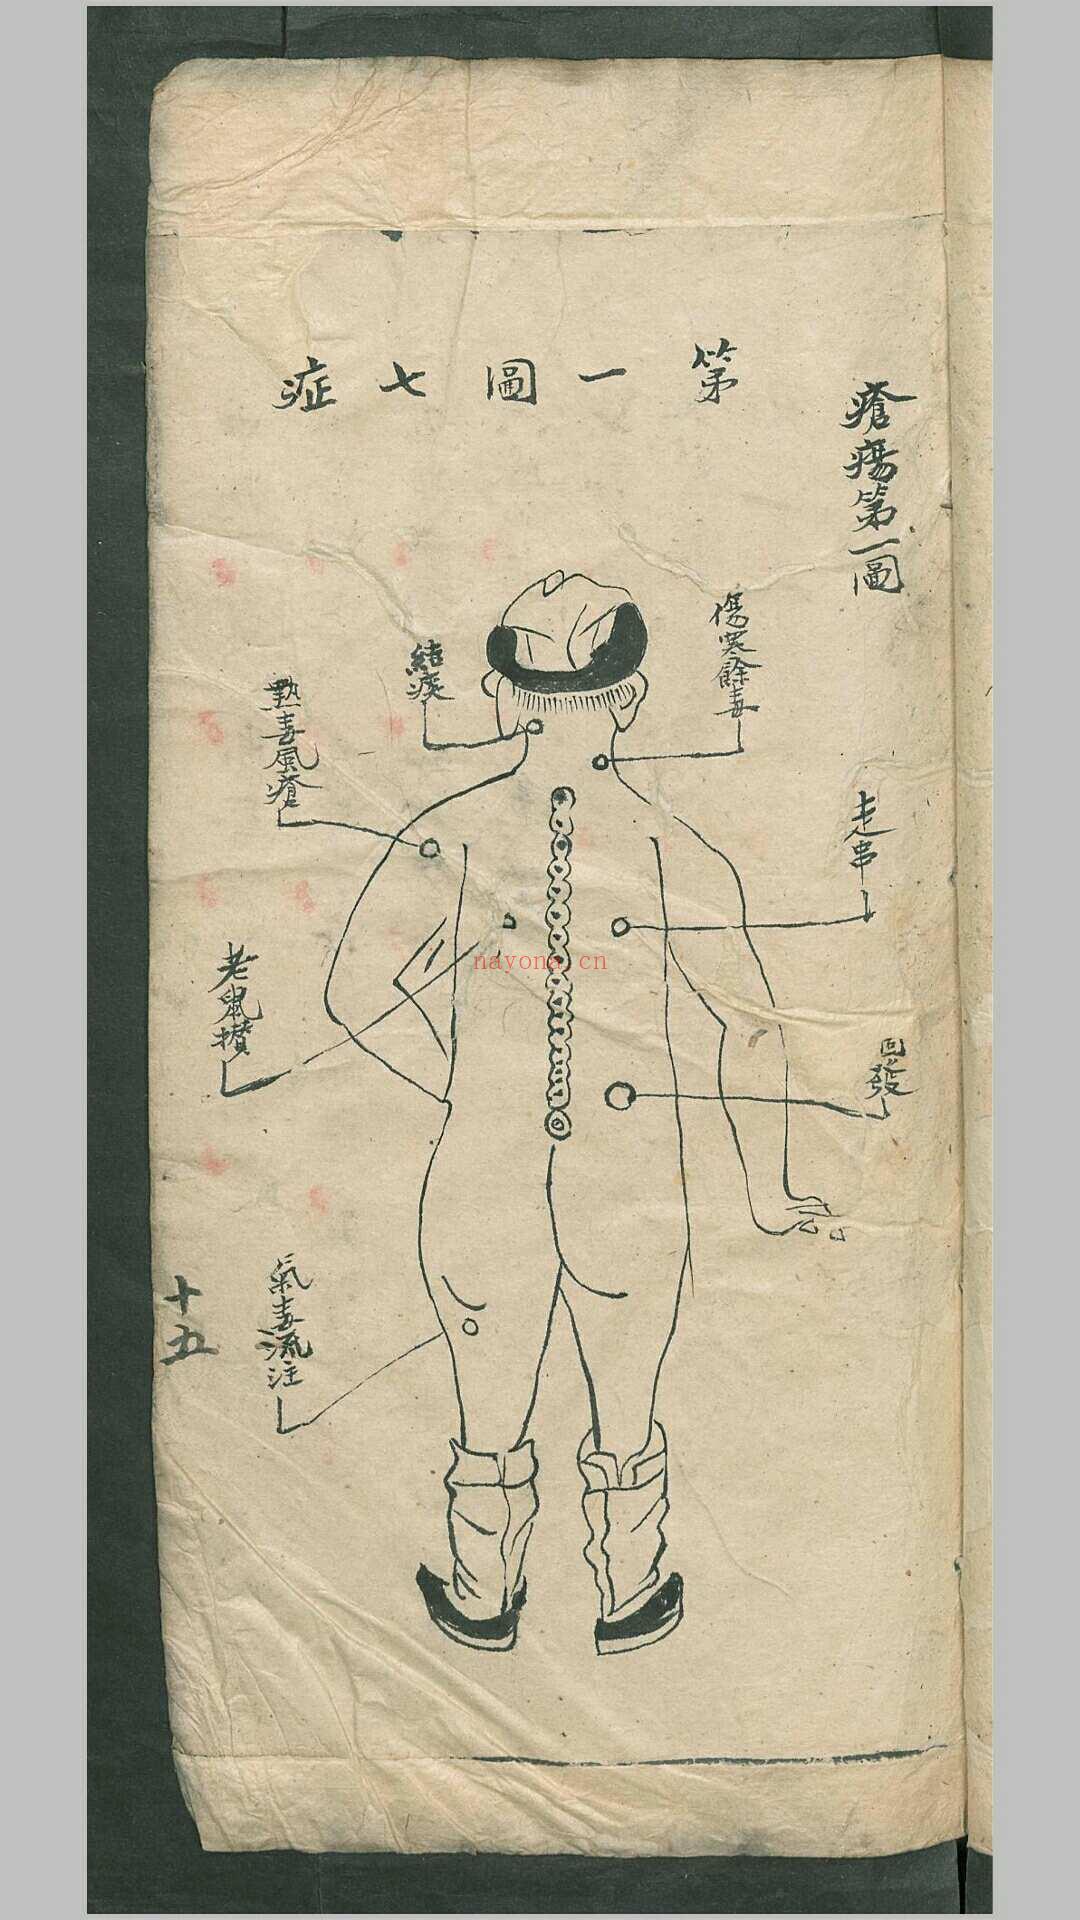 瘡瘍第一圖
第一圖七症
傷寒餘毒
走串
回發
結痰
熱毒風瘡
老鼠攢
氣毒流注
十五
nayona.cn